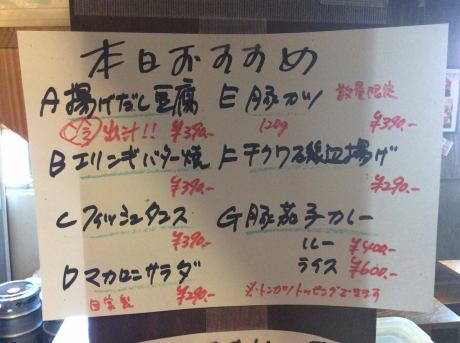 本日おすすめ
A 揚げだし豆腐
出汁!! ¥390.-
B エリンギバター焼
¥390.-
C フィッシュタコス
¥390.-
D マカロニサラダ
自家製 ¥290.-
E 豚カツ 数量限定
120g ¥390.-
F チクワ石綾辺揚げ
¥290.-
G 豚茄子カレー
ルー ¥400.-
ライス ¥600.-
※トンカツトッピングできます